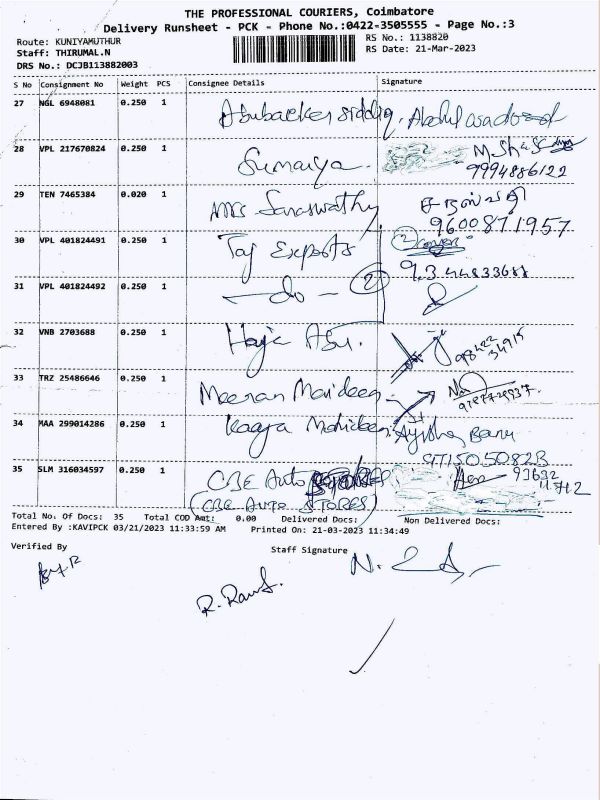 THE PROFESSIONAL COURIERS, Coimbatore
Delivery Runsheet - PCK - Phone No.:0422-3505555 - Page No.:3
Route: KUNIYAMUTHUR
Staff: THIRUMAL.N
DRS No.: DCJB113882003
RS No.: 1138820
RS Date: 21-Mar-2023
S No Consignment No Weight PCS Consignee Details Signature
27 NGL 6948081 0.250 1 Abubacker siddiq.
28 VPL 217670824 0.250 1 Sumaiya. 9994886122
29 TEN 7465384 0.020 1 Mrs Saraswathy சரஸ்வதி
9600871957
30 VPL 401824491 0.250 1 Taj Exports 2
31 VPL 401824492 0.250 1 — do — 2
32 VNB 2703688 0.250 1 Haje Abu. 98422 34915
33 TRZ 25486646 0.250 1 Meeran Moideen
34 MAA 299014286 0.250 1 Kaaja Mohideen Ayisha Banu
35 SLM 316034597 0.250 1 CBE Auto
(CBE AUTO STORES)
Total No. Of Docs: 35 Total COD Amt: 0.00 Delivered Docs: Non Delivered Docs:
Entered By :KAVIPCK 03/21/2023 11:33:59 AM Printed On: 21-03-2023 11:34:49
Verified By Staff Signature